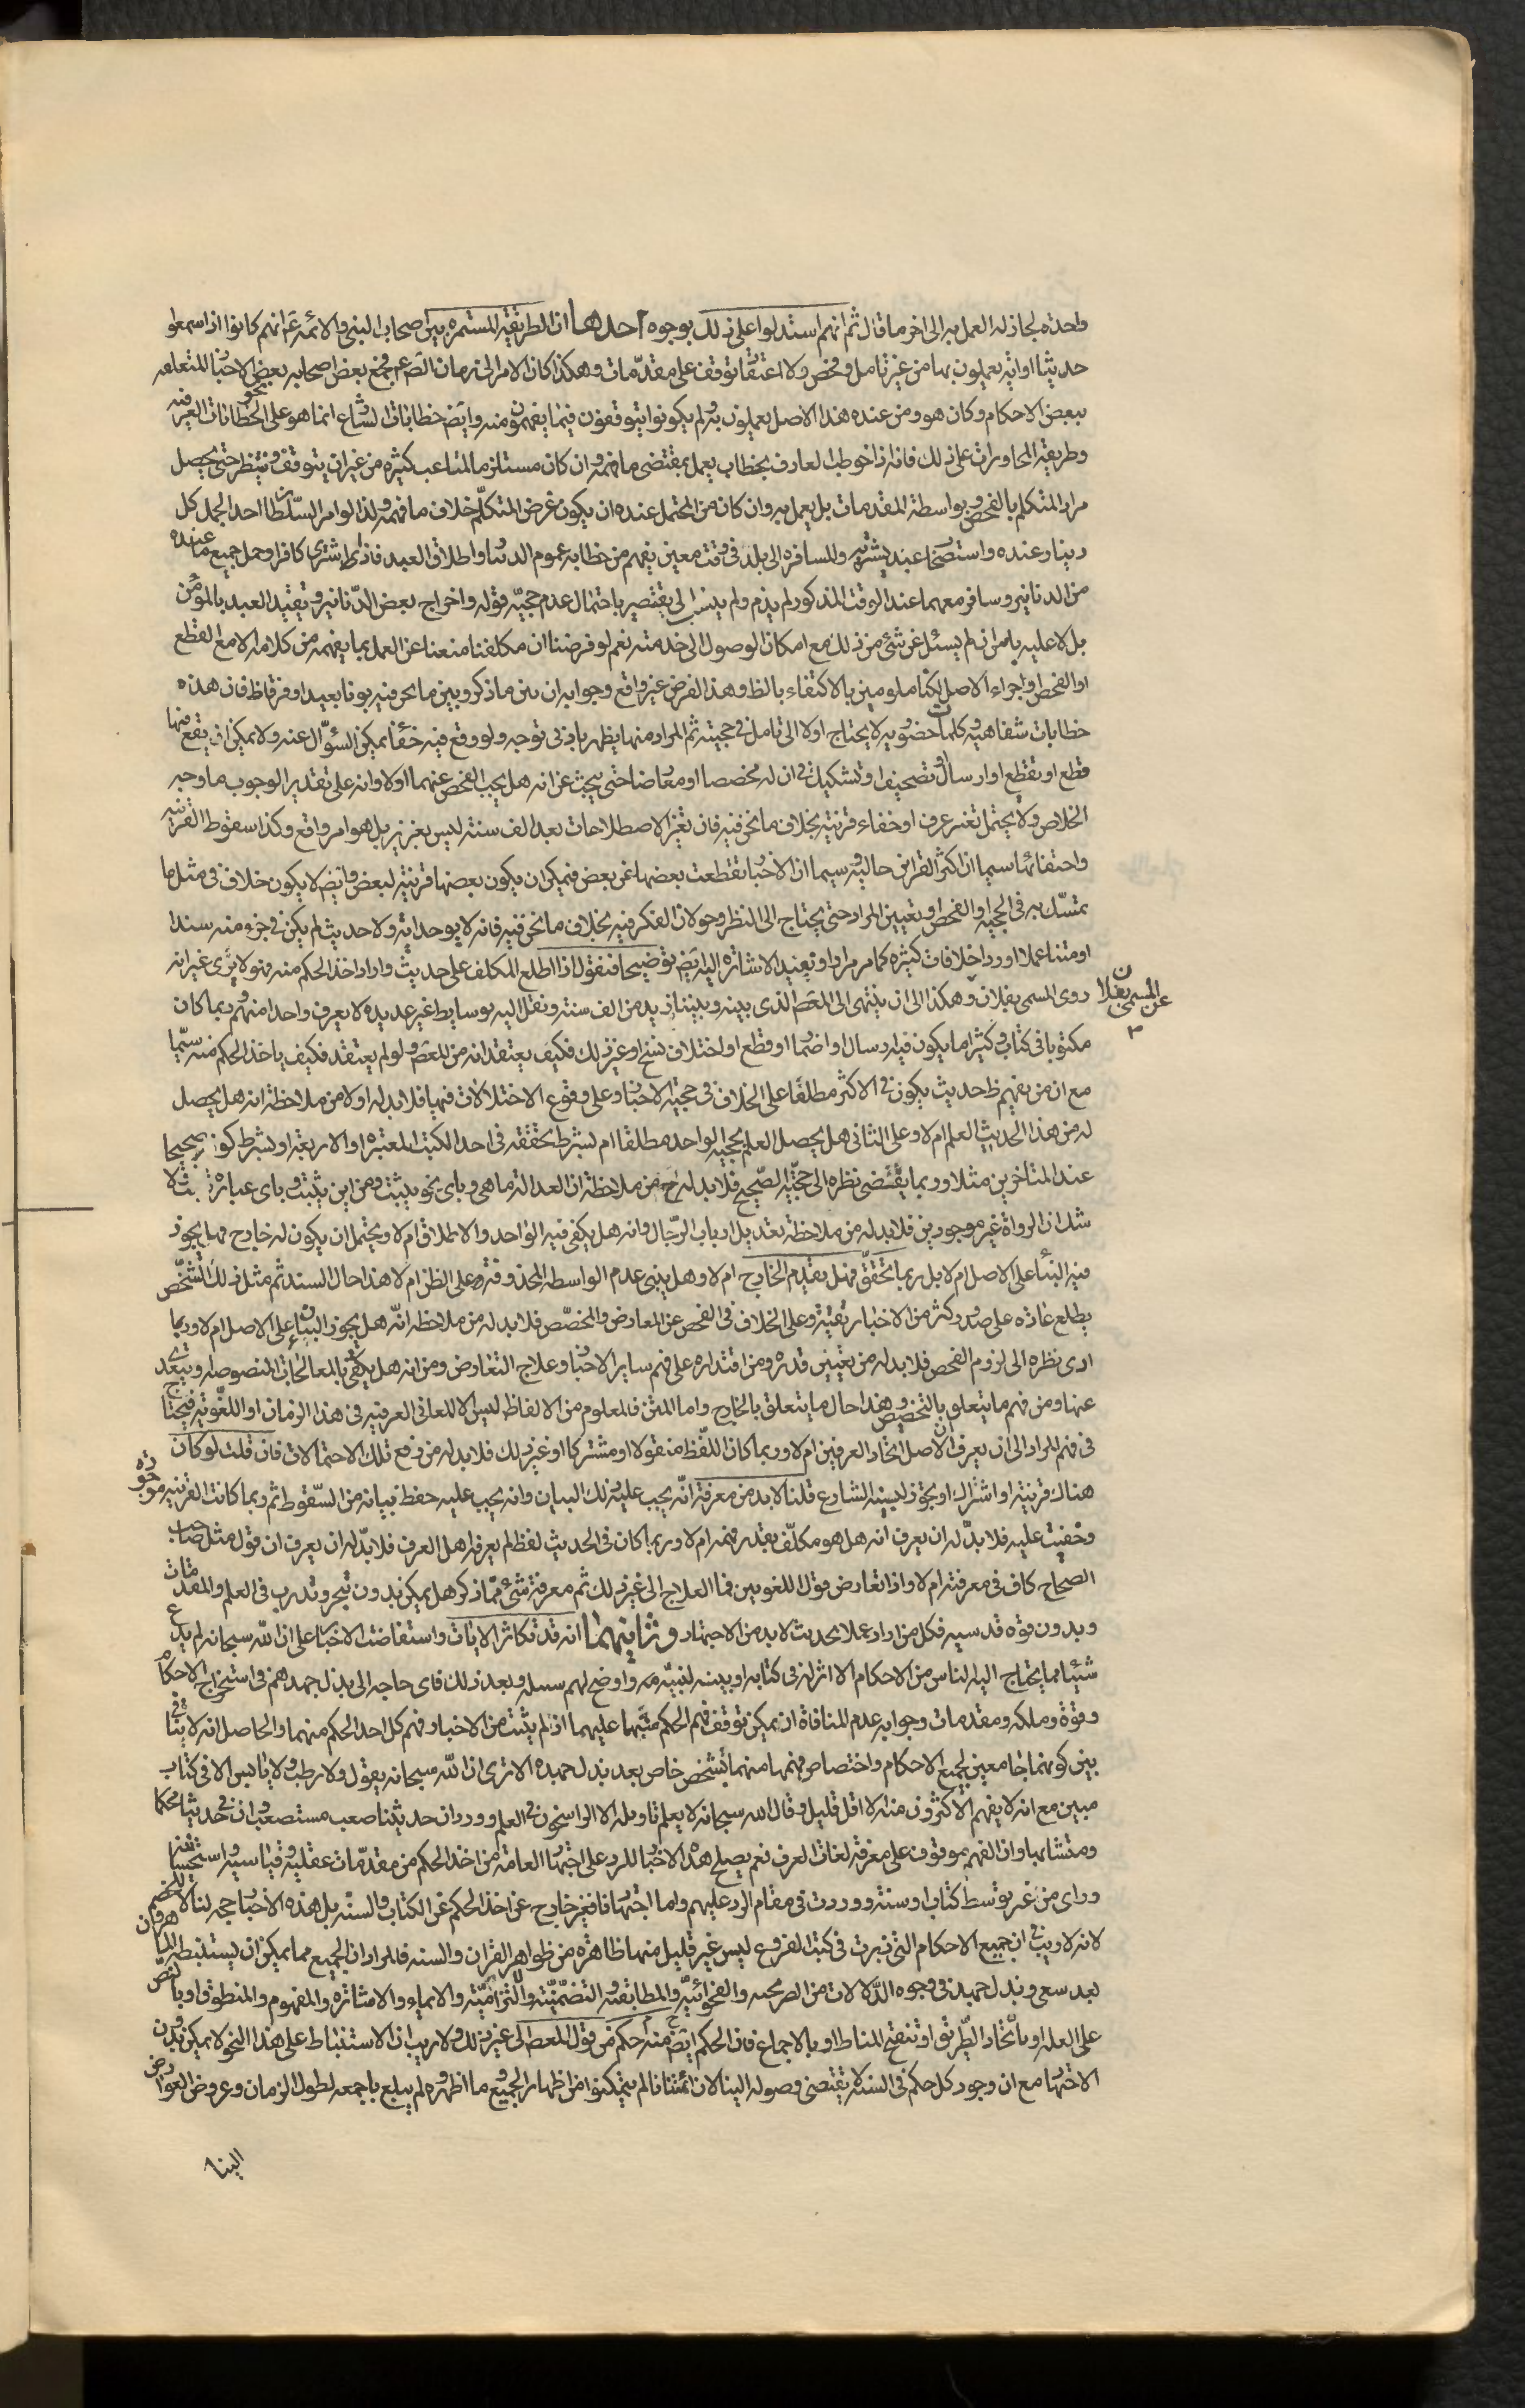 واحدة لجاز له العمل به الى اخر ما قال ثم انهم استدلوا على ذلك بوجوه احدها ان الطريقة المستمرة بين اصحاب النبي والائمة ع انهم كانوا اذا سمعوا
حديثا او اية يعملون بها من غير تامل وفحص ولا اعتقاد توقف على مقدمات وهكذا كان الامر الى زمان الص ع م فجمع بعض اصحابه بعض الاخبار المتعلقة
ببعض الاحكام وكان هو ومن عنده هذا الاصل يعملون به ولم يكونوا يتوقفون فيما يفهمون منه وايض خطابات الشارع انما هو على نحو الخطابات العرفية
وطريقة المحاورات على ذلك فانه اذا خوطب العارف بخطاب يعمل بمقتضى ما فهمه وان كان مستلزما لمتاعب كثيرة من غير ان يتوقف وينتظر حتى يحصل
مراد المتكلم بالفحص وبواسطة المقدمات بل يعمل به وان كان من المحتمل عنده ان يكون غرض المتكلم خلاف ما فهمه ولذا لو امر السلطان احدا بحمل كل
دينار عنده واستصحاب عبد يشتريه والمسافرة الى بلد في وقت معين يفهم من خطابه عموم الدينار واطلاق العبد فاذا اشترى كافرا وحمل جميع ما عنده
من الدنانير وسافر معهما عند الوقت المذكور لم يذم ولم ينسب الى تقصير باحتمال عدم حجية قوله واخراج بعض الدنانير وتقييد العبد بالمؤمن
بل لا عليه يلم ان لم يسئل عن شئ من ذلك مع امكان الوصول الى خدمته نعم لو فرضنا ان مكلفنا منعنا عن العمل بما يفهمه من كلامه الا مع القطع
او الفحص او اجراء الاصل لكنا ملومين بالاكتفاء بالظ وهذا الفرض غير واقع وجوابه ان بين ما ذكر وبين ما نحن فيه بونا بعيدا وفرقا ظ فان هذه
خطابات شفاهية وكلمات حضورية لا يحتاج اولا الى تامل في حجيته ثم المراد منها يظهر بادنى توجه ولو وقع فيه خفاء يمكن السؤال عنه ولا يمكن ان يقع منها
قطع او تقطع او ارسال او تصحيف او تشكيك في ان له مخصصا او معارضا حتى يبحث عن انه هل يجب الفحص عنهما او لا وانه على تقدير الوجوب ما وجه
الخلاص ولا يحتمل تغير عرف او خفاء قرينة بخلاف ما نحن فيه فان تغير الاصطلاحات بعد الف سنة ليس بعزيز بل هو امر واقع وكذا سقوط القرينة
واختفائها سيما ان اكثر القراين حالية وسيما ان الاخبار تقطعت بعضها عن بعض فيمكن ان يكون بعضها قرينة لبعض وايض لا يكون خلاف في مثل ما
يتمسك به في الحجية او الفحص او تعيين المراد حتى يحتاج الى النظر وجولان الفكر فيه بخلاف ما نحن فيه فانه لا يوجد اية ولا حديث لم يكن في جزء منه سندا
او متنا عملا اورد اختلافات كثيرة كما مر مرارا ونعيد الاشارة اليه ايض توضيحا فنقول اذا اطلع المكلف على حديث واراد اخذ الحكم منه فهو لا يرى غير انه
روى المسمى بفلان وهكذا الى ان ينتهى الى المعص الذى بينه وبيننا ازيد من الف سنة ونقل اليه بوسايط غير عديدة لا يعرف واحدا منهم وربما كان
عن المسمى بفلان
مكتوبا في كتاب وكثيرا ما يكون فيه ارسال او اضمار او قطع او اختلاف نسخ او غير ذلك فكيف يعتقد انه من المعص ولو لم يعتقد فكيف ياخذ الحكم منه سيما
مع ان من يفهم ظ حديث يكون في الاكثر مطلقا على الخلاف في حجية الاخبار وعلى وقوع الاختلالات فيها فلا بد له اولا من ملاحظة انه هل يحصل
له من هذا الحديث العلم ام لا وعلى الثاني هل يحصل العلم بحجية الواحد مطلقا ام بشرط تحققه في احد الكتب المعتبرة او الاربعة او بشرط كونه صحيحا
عند المتاخرين مثلا وربما يقتضى نظره الى حجية الصحيح فلا بد له ح من ملاحظة ان العدالة ما هي وباى نحو يثبت ومن اين يثبت وباى عبارة يثبت ولا
شك ان الرواة غير موجودين فلا بد له من ملاحظة تعديل ارباب الرجال وانه هل يكفى فيه الواحد والاطلاق ام لا ويحتمل ان يكون له جارح فهل يجوز
فيه البناء على الاصل ام لا بل ربما تحقق فهل يقدم الجارح ام لا وهل ينبى عدم الواسطة المحذوفة على الظن ام لا هذا حال السند ثم مثل ذلك الشخص
يطلع عادة على صدور كثير من الاخبار تقية وعلى الخلاف في الفحص عن المعارض والمخصص فلا بد له من ملاحظة انه هل يجوز البناء على الاصل ام لا وربما
ادى نظره الى لزوم الفحص فلا بد له من تعيين قدره ومن اقتداره على فهم ساير الاخبار وعلاج التعارض ومن انه هل يكتفى بالمعالجات المنصوصة او يتعدى
عنها ومن فهم ما يتعلق بالتخصيص وهذا حال ما يتعلق بالخارج واما المتن فالمعلوم من الالفاظ ليس الا المعانى العرفية في هذا الزمان او اللغوية فيحتاج
في فهم المراد الى ان يعرف ان الاصل اتحاد العرفين ام لا وربما كان اللفظ منقولا او مشتركا او غير ذلك فلا بد له من رفع تلك الاحتمالات فان قلت لو كان
هناك قرينة او اشتراك او تجوز لبينه الشارع قلنا لا بد من معرفة انه يجب عليه ذلك البيان وانه يجب عليه حفظ بيانه من السقوط ثم ربما كانت القرينة موجودة
وخفيت عليه فلا بد له ان يعرف انه هل هو مكلف بقدر فهمه ام لا وربما كان في الحديث لفظ لم يعرفه اهل العرف فلا بد له ان يعرف ان قول مثل صاحب
الصحاح كاف في معرفته ام لا واذا تعارض قول اللغويين فما العلاج الى غير ذلك ثم معرفة شئ مما ذكر هل يمكن بدون تبحر وتدرب في العلم والمقدمات
وبدون قوة قدسية فكل من اراد عملا بحديث لا بد من الاجتهاد وثانيهما انه قد تكاثر الايات واستفاضت الاخبار على ان الله سبحانه لم يدع
شيئا مما يحتاج اليه الناس من الاحكام الا انزله في كتابه او بينه لنبيه ص واوضح لهم سبيله وبعد ذلك فاى حاجة الى بذل جهدهم في استخراج الاحكام
وقوة وملكة ومقدمات وجوابه عدم المنافاة اذ يمكن توقف فهم الحكم منهما عليهما اذ لم يثبت من الاخبار فهم كل احد الحكم منهما والحاصل انه لا ينافى
بين كونهما جامعين لجميع الاحكام واختصاص فهمها منهما بشخص خاص بعد بذل جهده الا ترى ان الله سبحانه يقول ولا رطب ولا يابس الا في كتاب
مبين مع انه لا يفهم الاكثرون منه الا اقل قليل وقال الله سبحانه لا يعلم تاويله الا الراسخون في العلم وورد ان حديثنا صعب مستصعب وان في حديثنا محكما
ومتشابها وان الفهم موقوف على معرفة لغات العرف نعم يصلح هذه الاخبار للرد على اجتهاد العامة من اخذ الحكم من مقدمات عقلية وقياسية واستحسانية
وراى من غير توسط كتاب او سنة ووردت في مقام الرد عليهم واما اجتهادنا فغير خارج عن اخذ الحكم عن الكتاب والسنة بل هذه الاخبار حجة لنا لا للخصم
لانه لا ريب في ان جميع الاحكام التى زبرت في كتب الفروع ليس غير قليل منها ظاهرة من ظواهر القران والسنة فالمراد ان الجميع مما يمكن ان يستنبطه الماهرون
بعد سعى وبذل جهد في وجوه الدلالات من الصريحة والفحوائية والمطابقة والتضمنية والالتزامية والايماء والاشارة والمفهوم والمنطوق او بالنص
على العلة او باتحاد الطريق او تنقيح المناط او بالاجماع فان الحكم ايض منه حكم من قول المعص الى غير ذلك ولا ريب ان الاستنباط على هذا النحو لا يمكن بدون
الاجتهاد مع ان وجود كل حكم في السنة لا يقتضى وصوله الينا لان ائمتنا لم يتمكنوا من اظهار الجميع وما اظهروه لم يبلغ باجمعه لطول الزمان وعروض العوارض
الينا